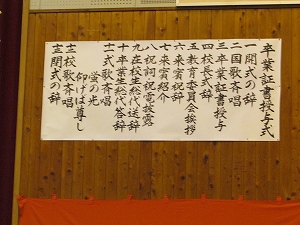 卒業証書授与式
一開式の辞
二国歌斉唱
三卒業証書授与
四校長式辞
五教育委員会挨拶
六来賓祝辞
七来賓紹介
八祝詞祝電披露
九在校生総代送辞
十卒業生総代答辞
十一式歌斉唱
蛍の光
仰げば尊し
十二校歌斉唱
十三閉式の辞